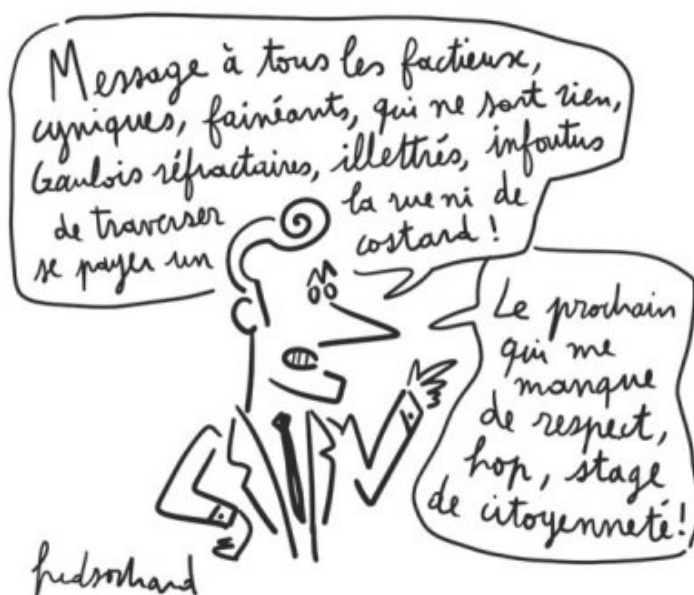 Message à tous les factieux,
cyniques, fainéants, qui ne sont rien,
Gaulois réfractaires, illettrés, infoutus
de traverser la rue ni de
se payer un costard !
Le prochain
qui me
manque
de respect,
hop, stage
de citoyenneté!
fredsochard